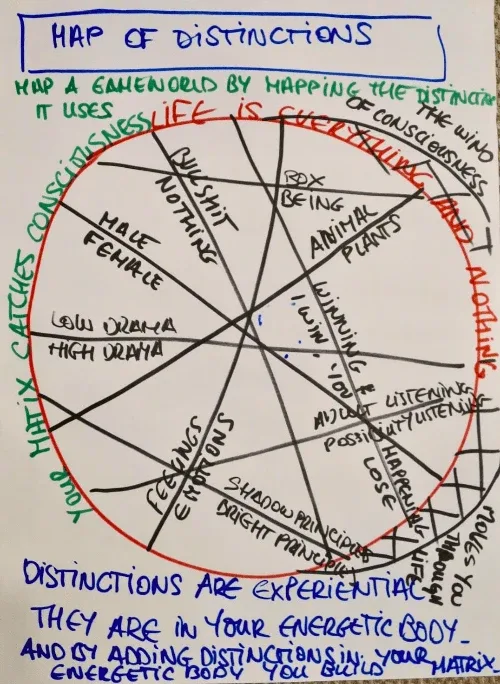 MAP OF DISTINCTIONS
MAP A GAMEWORLD BY MAPPING THE DISTINCTIONS
IT USES
LIFE IS EVERYTHING AND NOTHING
THE WIND
OF CONSCIOUSNESS
MOVES YOU
THROUGH
LIFE
YOUR MATIX CATCHES CONSCIOUSNESS
BULLSHIT
NOTHING
BOX
BEING
ANIMAL
PLANTS
MALE
FEMALE
WINNING
HAPPENING
I WIN, YOU
LOSE
LOW DRAMA
HIGH DRAMA
ADULT LISTENING
POSSIBILITY LISTENING
FEELINGS
EMOTIONS
SHADOW PRINCIPLES
BRIGHT PRINCIPLES
DISTINCTIONS ARE EXPERIENTIAL
THEY ARE IN YOUR ENERGETIC BODY_
AND BY ADDING DISTINCTIONS IN YOUR
ENERGETIC BODY YOU BUILD MATRIX_